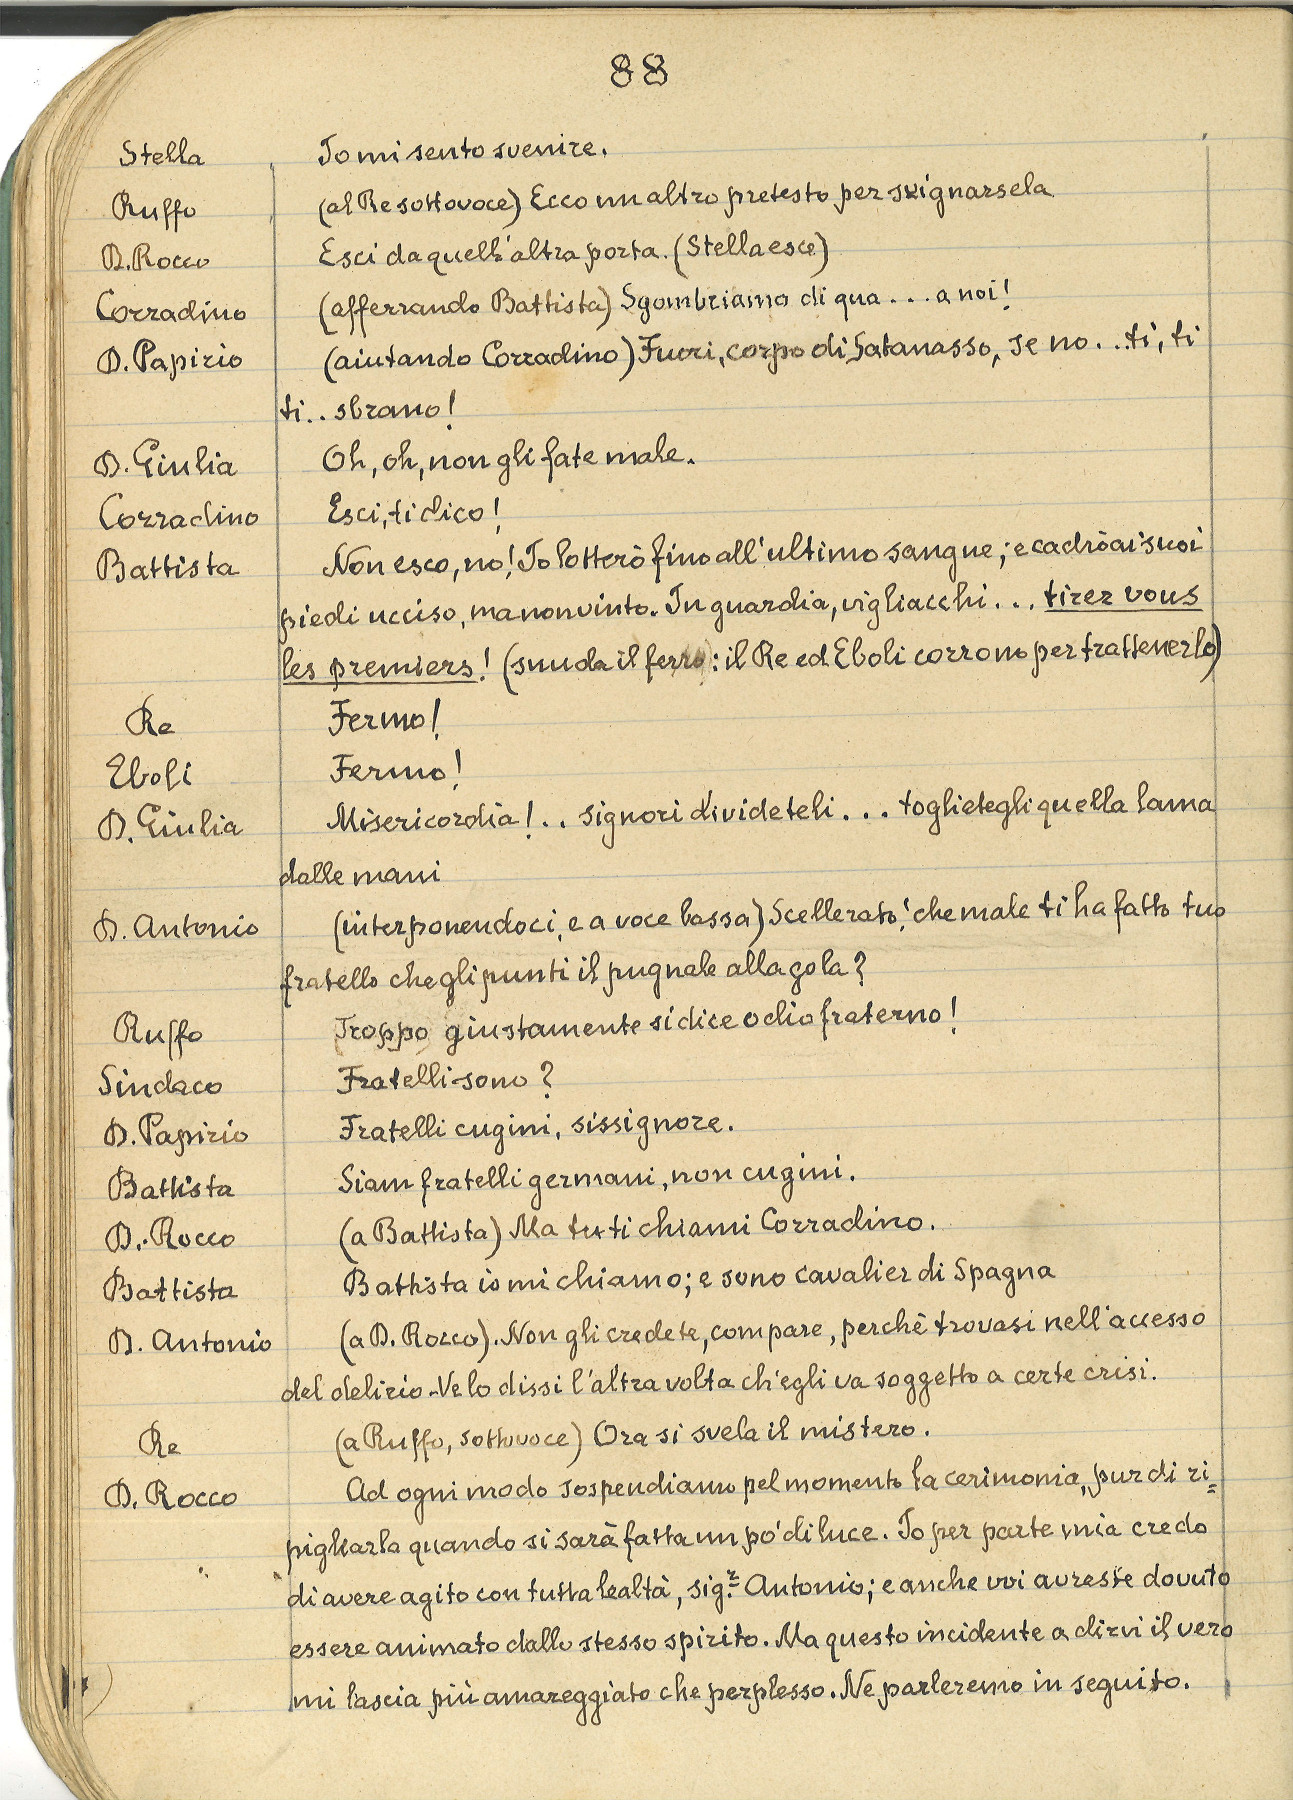 88
Stella Io mi sento svenire.
Ruffo (al Re sottovoce) Ecco un altro pretesto per svignarsela
D. Rocco Esci da quell'altra porta. (Stella esce)
Corradino (afferrando Battista) Sgombriamo di qua... a noi!
D. Papirio (aiutando Corradino) Fuori, corpo di Satanasso, se no... ti, ti
ti.. sbrano!
D. Giulia Oh, oh, non gli fate male.
Corradino Esci, ti dico!
Battista Non esco, no! Io lotterò fino all'ultimo sangue; e cadrò ai suoi
piedi ucciso, ma non vinto. In guardia, vigliacchi... tirez vous
les premiers! (snuda il ferro: il Re ed Eboli corrono per trattenerlo)
Re Fermo!
Eboli Fermo!
D. Giulia Misericordia!.. signori divideteli... toglietegli quella lama
dalle mani
D. Antonio (interponendoci, e a voce bassa) Scellerato! che male ti ha fatto tuo
fratello che gli punti il pugnale alla gola?
Ruffo Troppo giustamente si dice odio fraterno!
Sindaco Fratelli sono?
D. Papirio Fratelli cugini, sissignore.
Battista Siam fratelli germani, non cugini.
D. Rocco (a Battista) Ma tu ti chiami Corradino.
Battista Battista io mi chiamo; e sono cavalier di Spagna
D. Antonio (a D. Rocco). Non gli credete, compare, perchè trovasi nell'accesso
del delirio. Ve lo dissi l'altra volta ch'egli va soggetto a certe crisi.
Re (a Ruffo, sottovoce) Ora si svela il mistero.
D. Rocco Ad ogni modo sospendiamo pel momento la cerimonia, pur di ri=
pigliarla quando si sarà fatta un po' di luce. Io per parte mia credo
di avere agito con tutta lealtà, sig.r Antonio; e anche voi avreste dovuto
essere animato dallo stesso spirito. Ma questo incidente a dirvi il vero
mi lascia più amareggiato che perplesso. Ne parleremo in seguito.